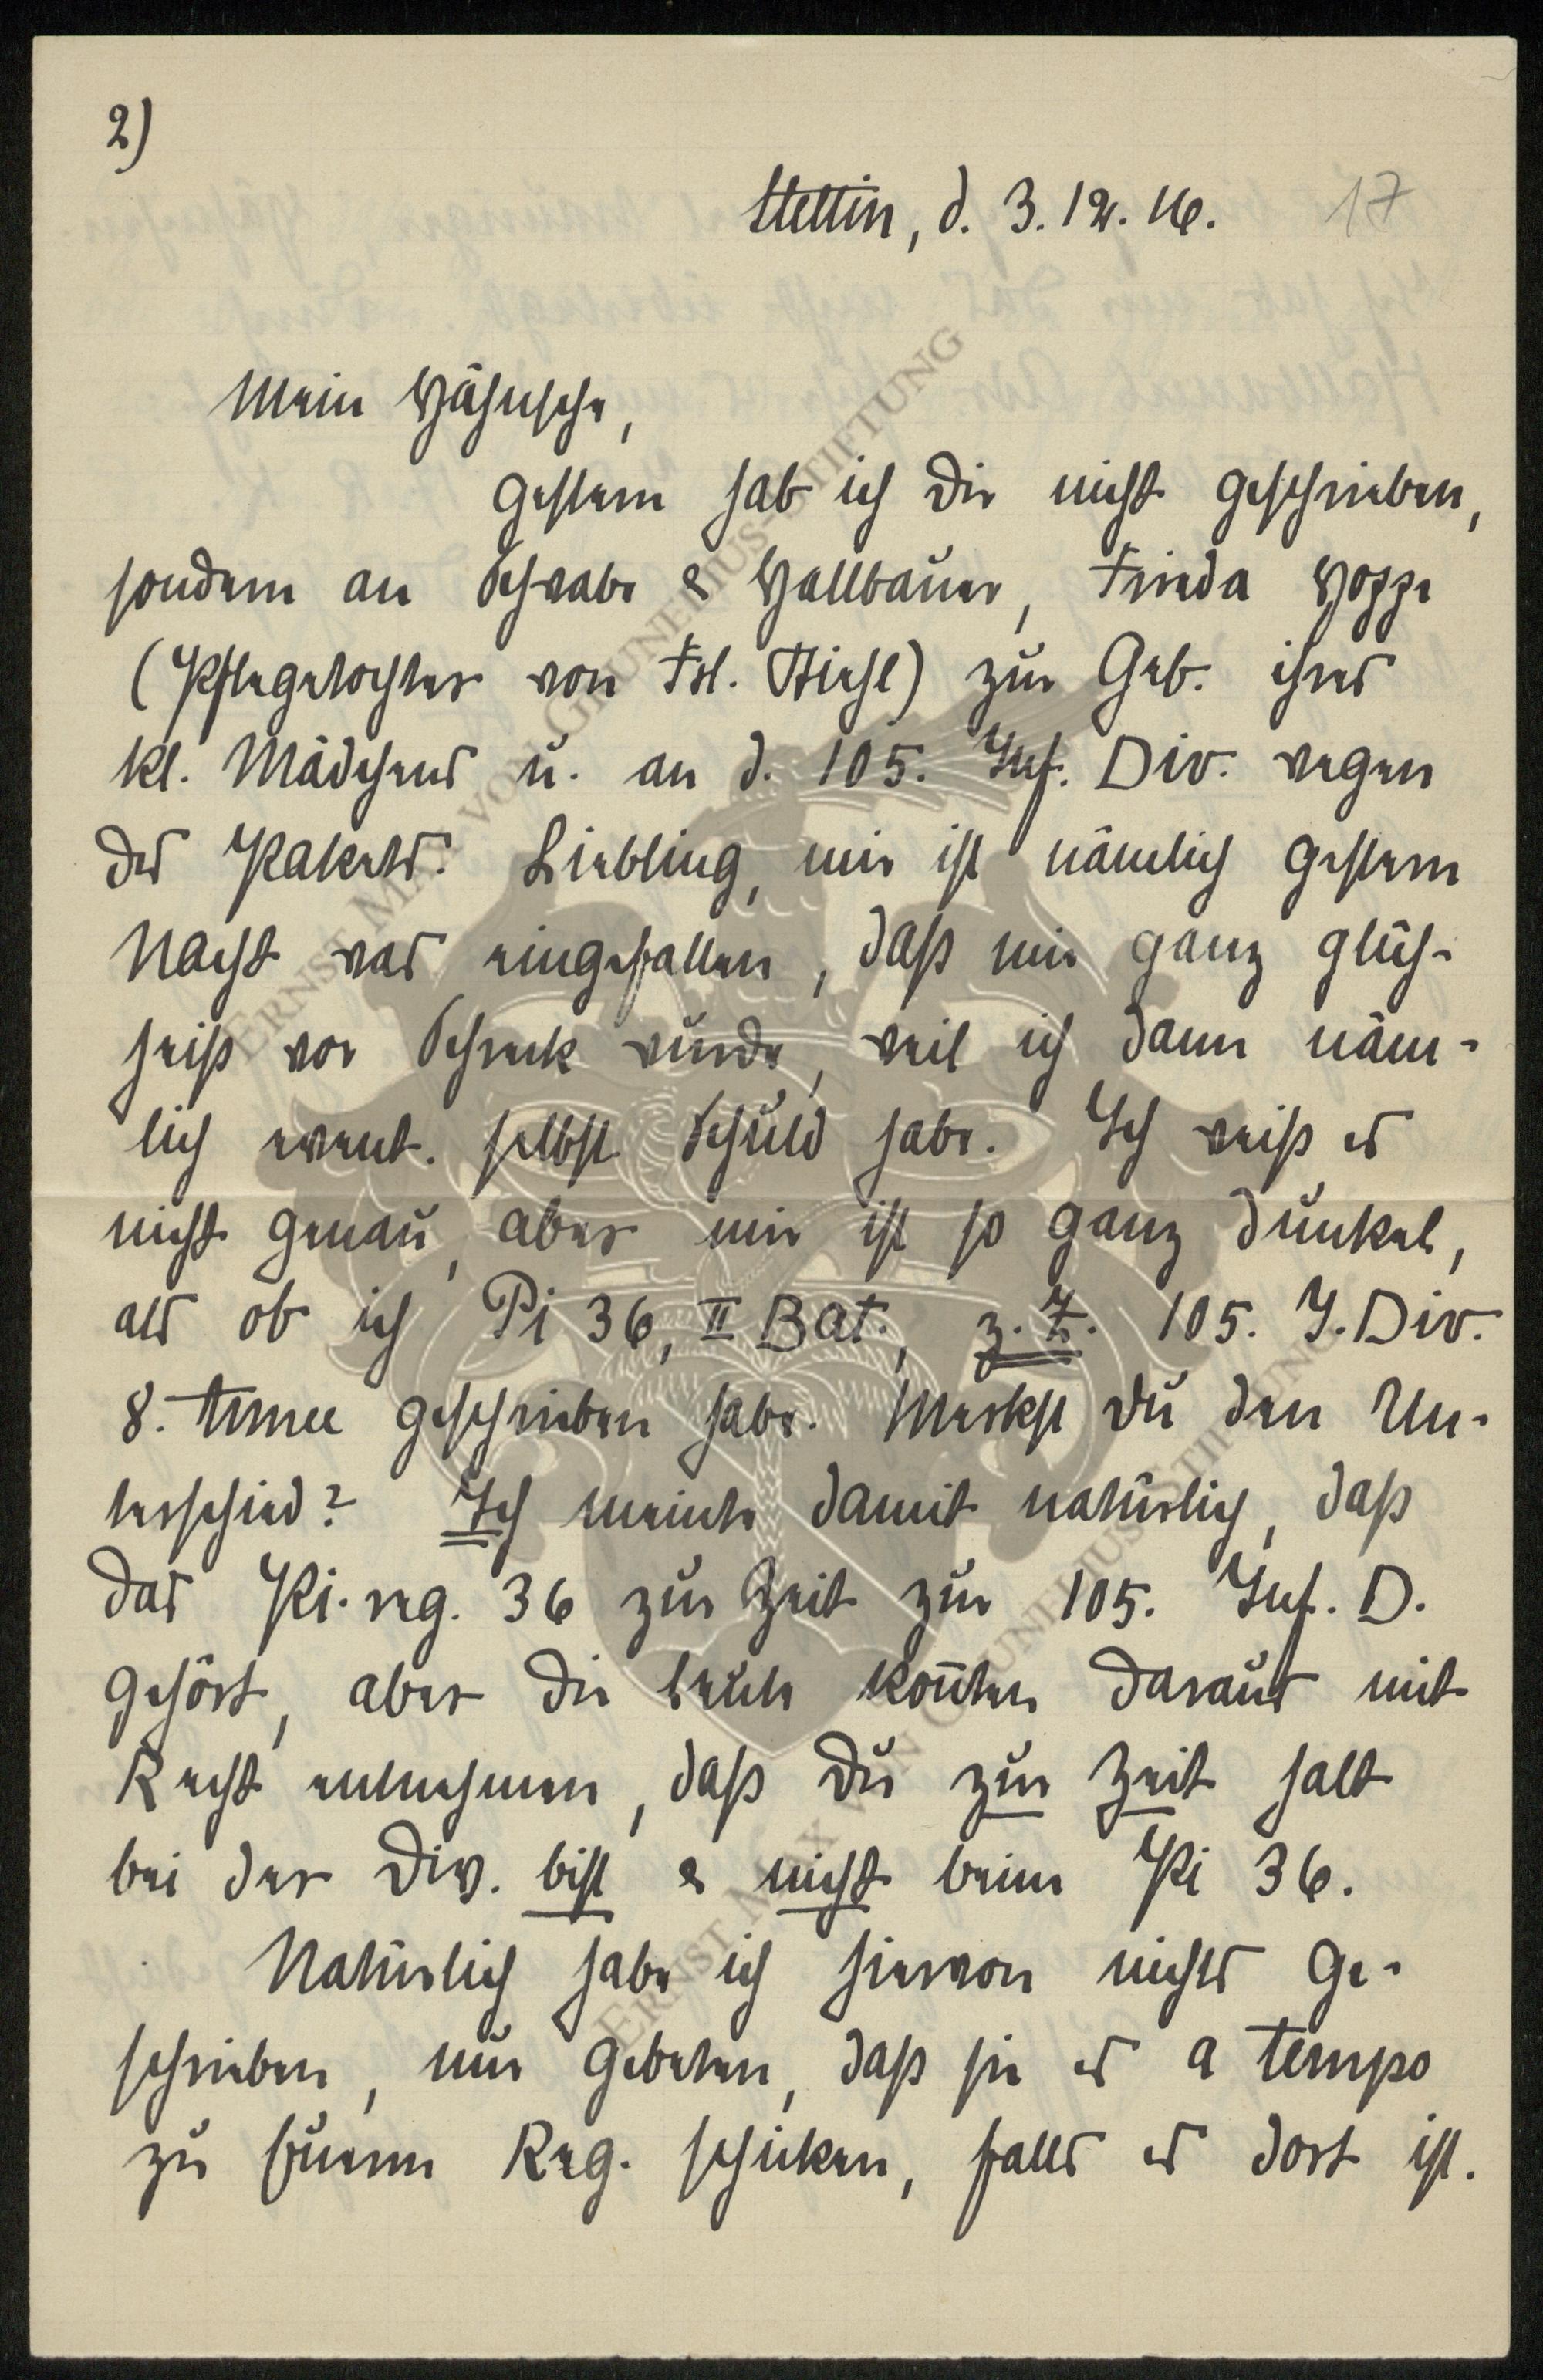 2)
Stettin, d. 3.12.16. 17
Mein Hähnsche,
gestern hab ich Dir nicht geschrieben,
sondern an Schwabe & Hallbauer, Frieda Hoppe
(Pflegetochter von Frl. Riehl) zur Geb. ihres
kl. Mädchens u. an d. 105. Inf. Div. wegen
des Pakets. Liebling, mir ist nämlich gestern
Nacht was eingefallen, daß mir ganz glüh-
heiß vor Schreck wurde, weil ich dann näm-
lich event. selbst Schuld habe. Ich weiß es
nicht genau, aber mir ist so ganz dunkel,
als ob ich Pi 36, II Bat., z. Z. 105. I. Div.
8. Armee geschrieben habe. Merkst Du den Un-
terschied? Ich meinte damit natürlich, daß
das Pi. reg. 36 zur Zeit zur 105. Inf. D.
gehört, aber die Leute konnten daraus mit
Recht entnehmen, daß Du zur Zeit halt
bei der Div. bist & nicht beim Pi 36.
Natürlich habe ich hiervon nichts ge-
schrieben, nur gebeten, daß sie es a tempo
zu Euerm Reg. schicken, falls es dort ist.
ERNST MAX VON GRUNELIUS-STIFTUNG
ERNST MAX VON GRUNELIUS-STIFTUNG